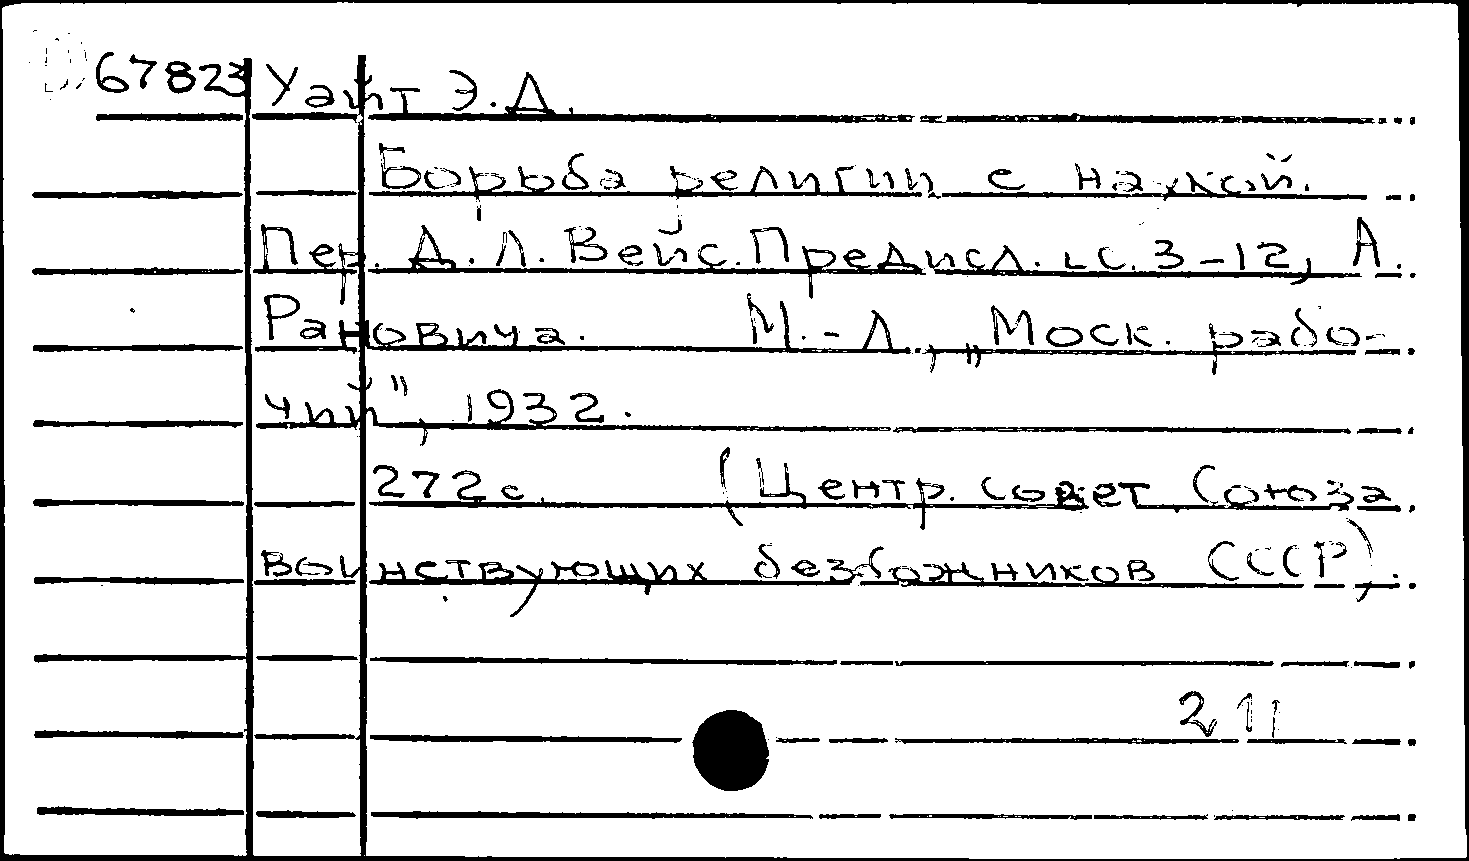 67823 Уайт Э.Д.
Борьба религии с наукой.
Пер. Д.Л. Вейс. Предисл. с. 3-12, А.
Рановича. М.-Л., „Моск. рабо-
чий", 1932.
272 с. (Центр. совет Союза
воинствующих безбожников СССР).
211